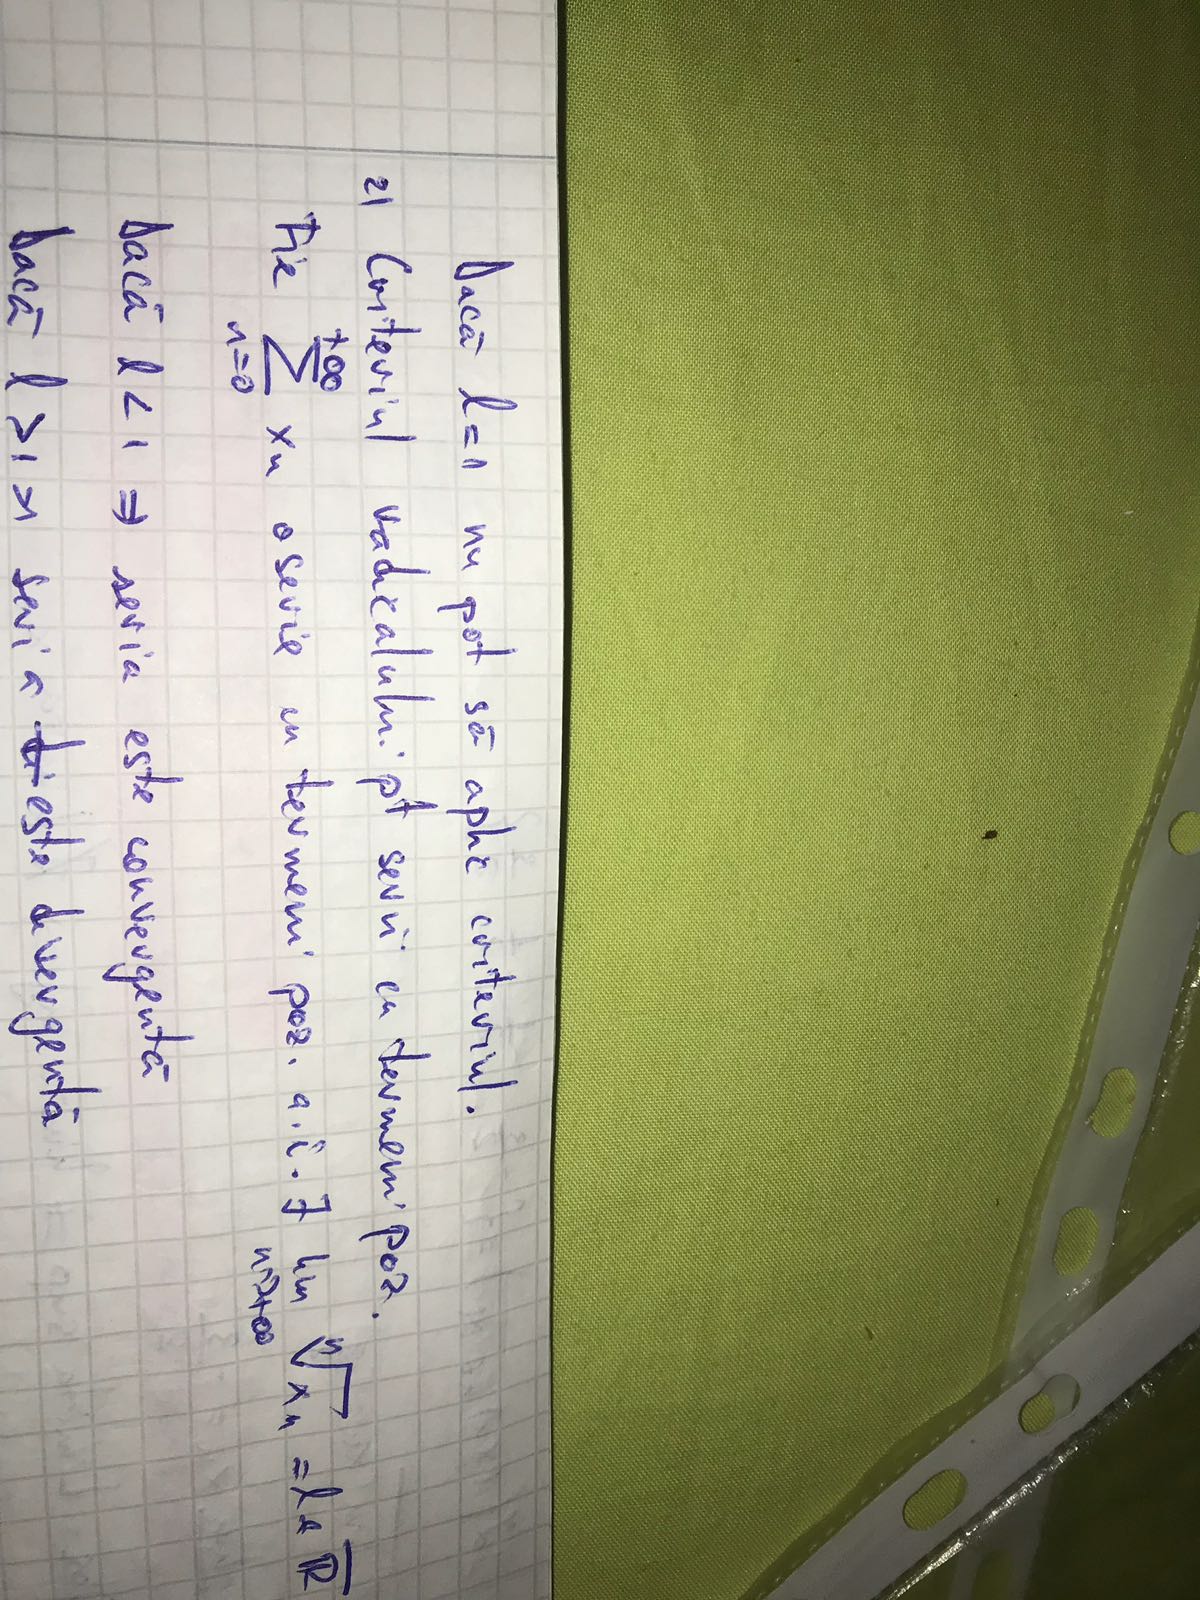 Dacă l=1 nu pot să aplic criteriul.
2) Criteriul radicalului pt serii cu termeni poz.
Fie \sum_{n=0}^{+∞} x_n o serie cu termeni poz. a.î. ∃ lim_{n→+∞} \sqrt[n]{x_n} = l ∈ \overline{ℝ}
Dacă l < 1 ⇒ seria este convergentă
Dacă l > 1 ⇒ seria este divergentă